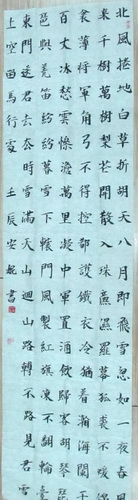 北風捲地白草折胡天八月即飛雪忽如一夜春風
來千樹萬樹梨花開散入珠簾濕羅幕狐裘不暖錦
衾薄將軍角弓不得控都護鐵衣冷猶著瀚海闌干
百丈冰愁雲慘澹萬里凝中軍置酒飲歸客胡琴琵
琶與羌笛紛紛暮雪下轅門風掣紅旗凍不翻輪臺
東門送君去去時雪滿天山路山迴路轉不見君雪
上空留馬行處 壬辰宏 書